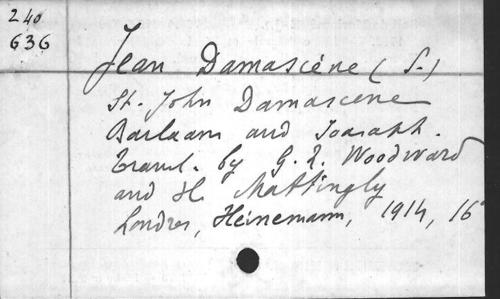 240
636
Jean Damascène (S.)
St. John Damascene
Barlaam and Ioasaph.
Transl. by G. R. Woodward
and H. Mattingly
Londres, Heinemann, 1914, 16°